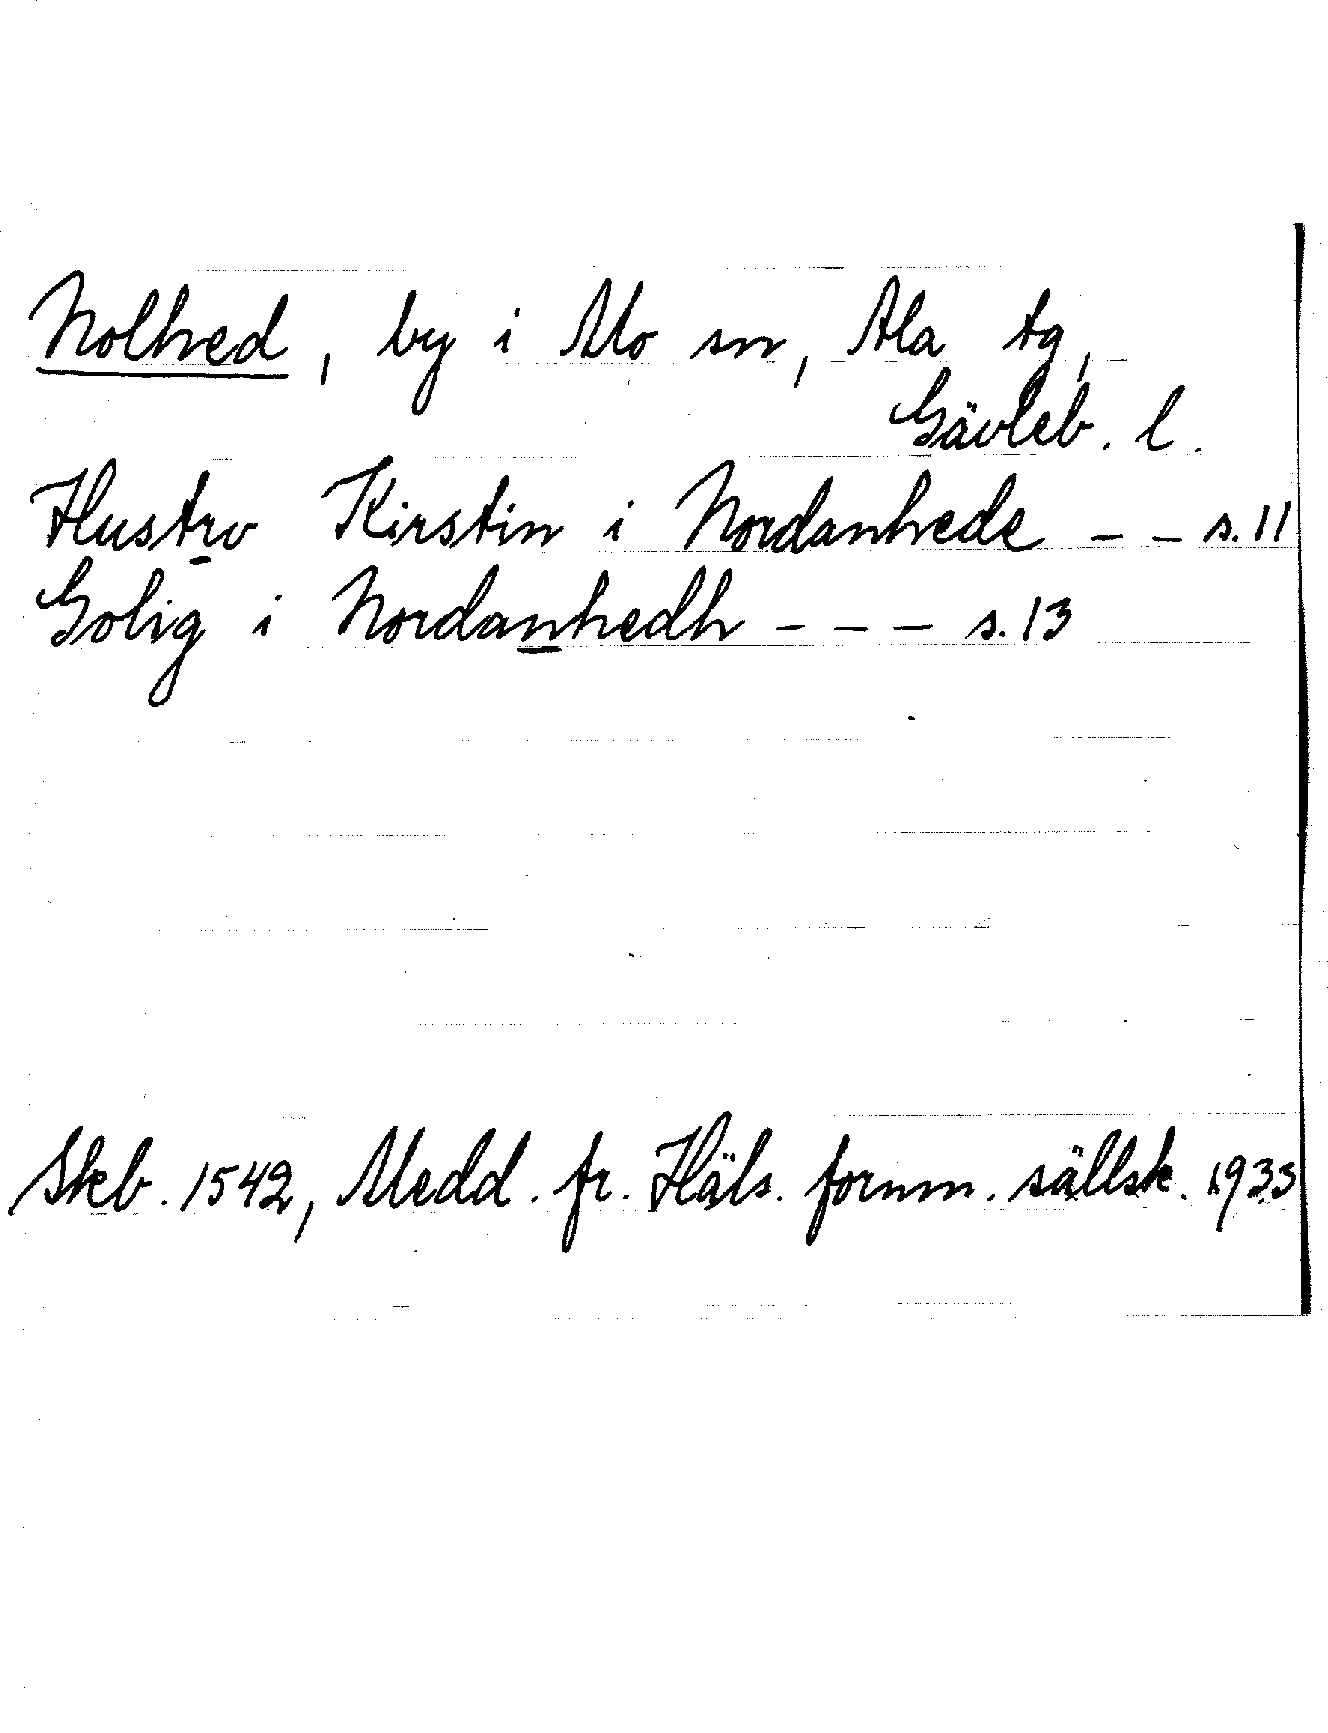 Nolhed, by i Mo sn, Ala tg,
Gävleb. l.
Hustrv Kirstin i Nordanhede - - s. 11
Golig i Nordanhedh - - - s. 13
Skeb. 1542, Medd. fr. Häls. fornm. sällsk. 1933